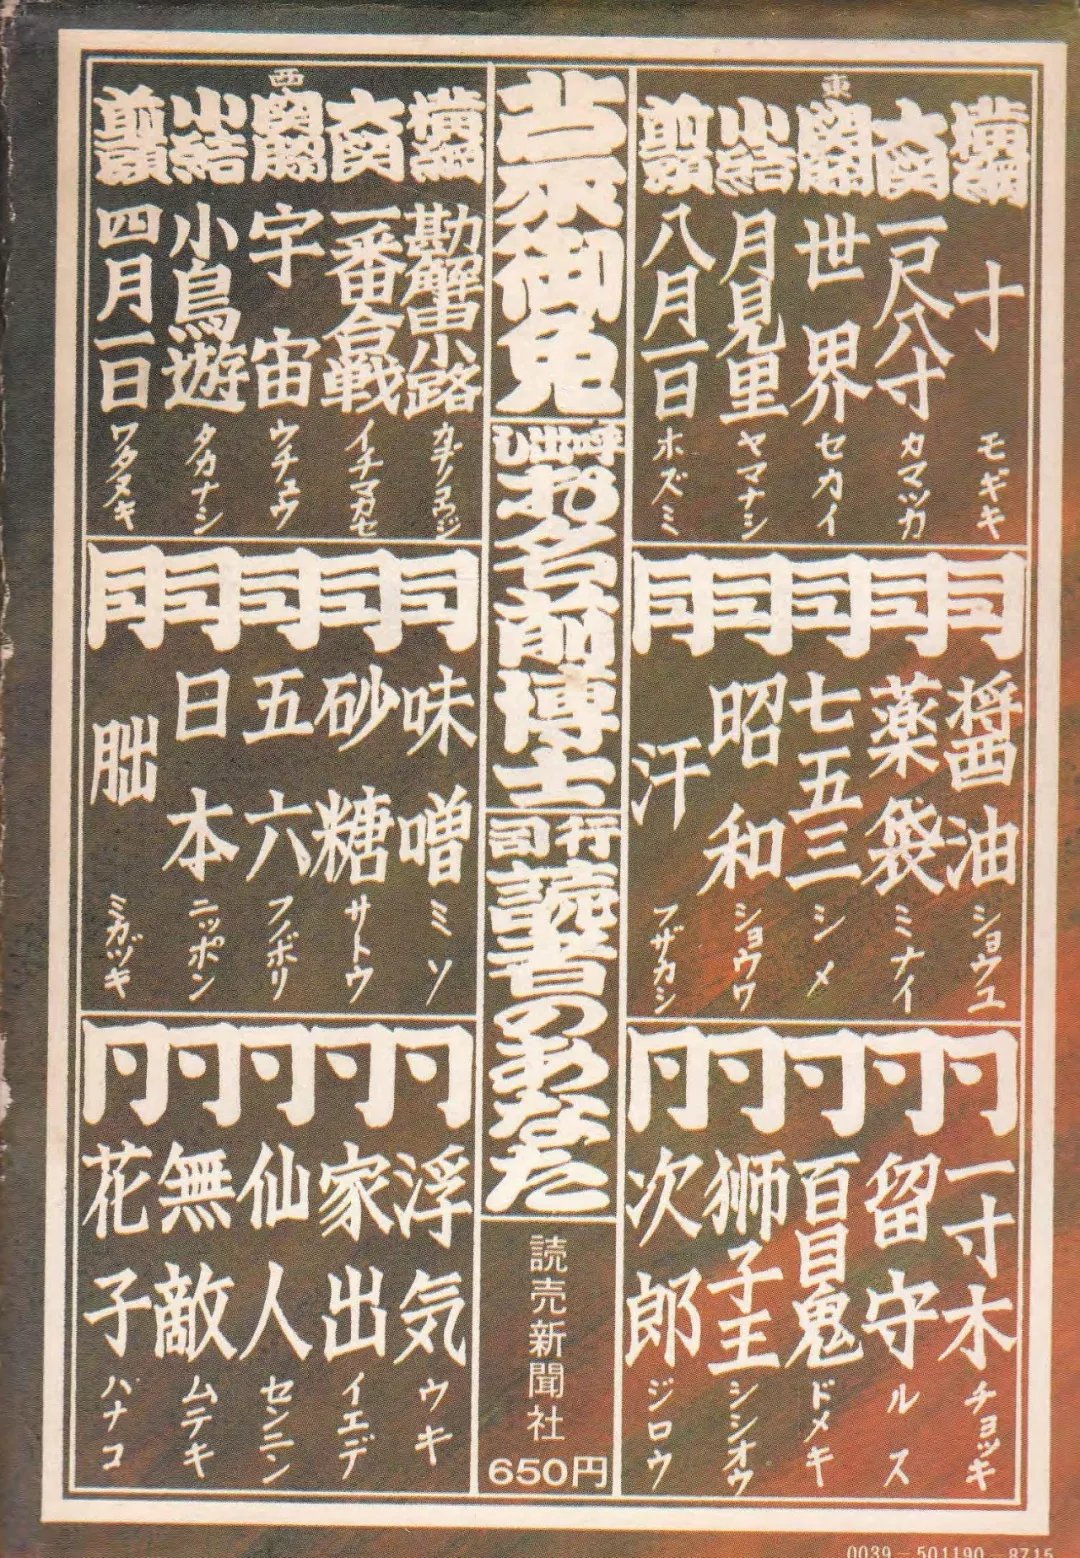 東
横綱 十 モギキ
大関 一尺八寸 カマツカ
関脇 世界 セカイ
小結 月見里 ヤマナシ
前頭 八月一日 ホズミ
同 醤油 ショウユ
同 薬袋 ミナイ
同 七五三 シメ
同 昭和 ショウワ
同 汗 フザカシ
同 一寸木 チョッキ
同 留守 ルス
同 百目鬼 ドメキ
同 獅子王 シシオウ
同 次郎 ジロウ
蒙御免
呼出し
お名前博士
行司
読者のあなた
読売新聞社
650円
西
横綱 勘解由小路 カデノコウジ
大関 一番合戦 イチマカセ
関脇 宇宙 ウチュウ
小結 小鳥遊 タカナシ
前頭 四月一日 ワタヌキ
同 味噌 ミソ
同 砂糖 サトウ
同 五六 フノボリ
同 日本 ニッポン
同 朏 ミカヅキ
同 浮気 ウキ
同 家出 イエデ
同 仙人 センニン
同 無敵 ムテキ
同 花子 ハナコ
0039-501190-8715